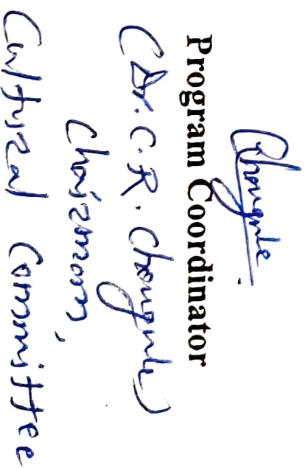 Chongule
Program Coordinator
(Dr. C. R. Chongule)
Chairman,
Cultural Committee